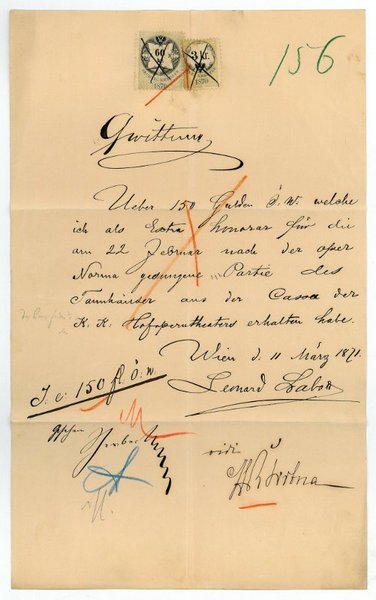 156
60
3 kr.
1870
1870
Quittung
Ueber 150 Gulden Ö. W. welche
ich als Extra honorar für die
am 22 Februar nach der oper
Norma gesungene Partie des
Tannhäuser aus der Cassa der
K. K. Hofoperntheaters erhalten habe.
Wien d. 11 März 1871.
Leonard Labatt
I. e. 150 fl. ö. w.
gesehen
vidi